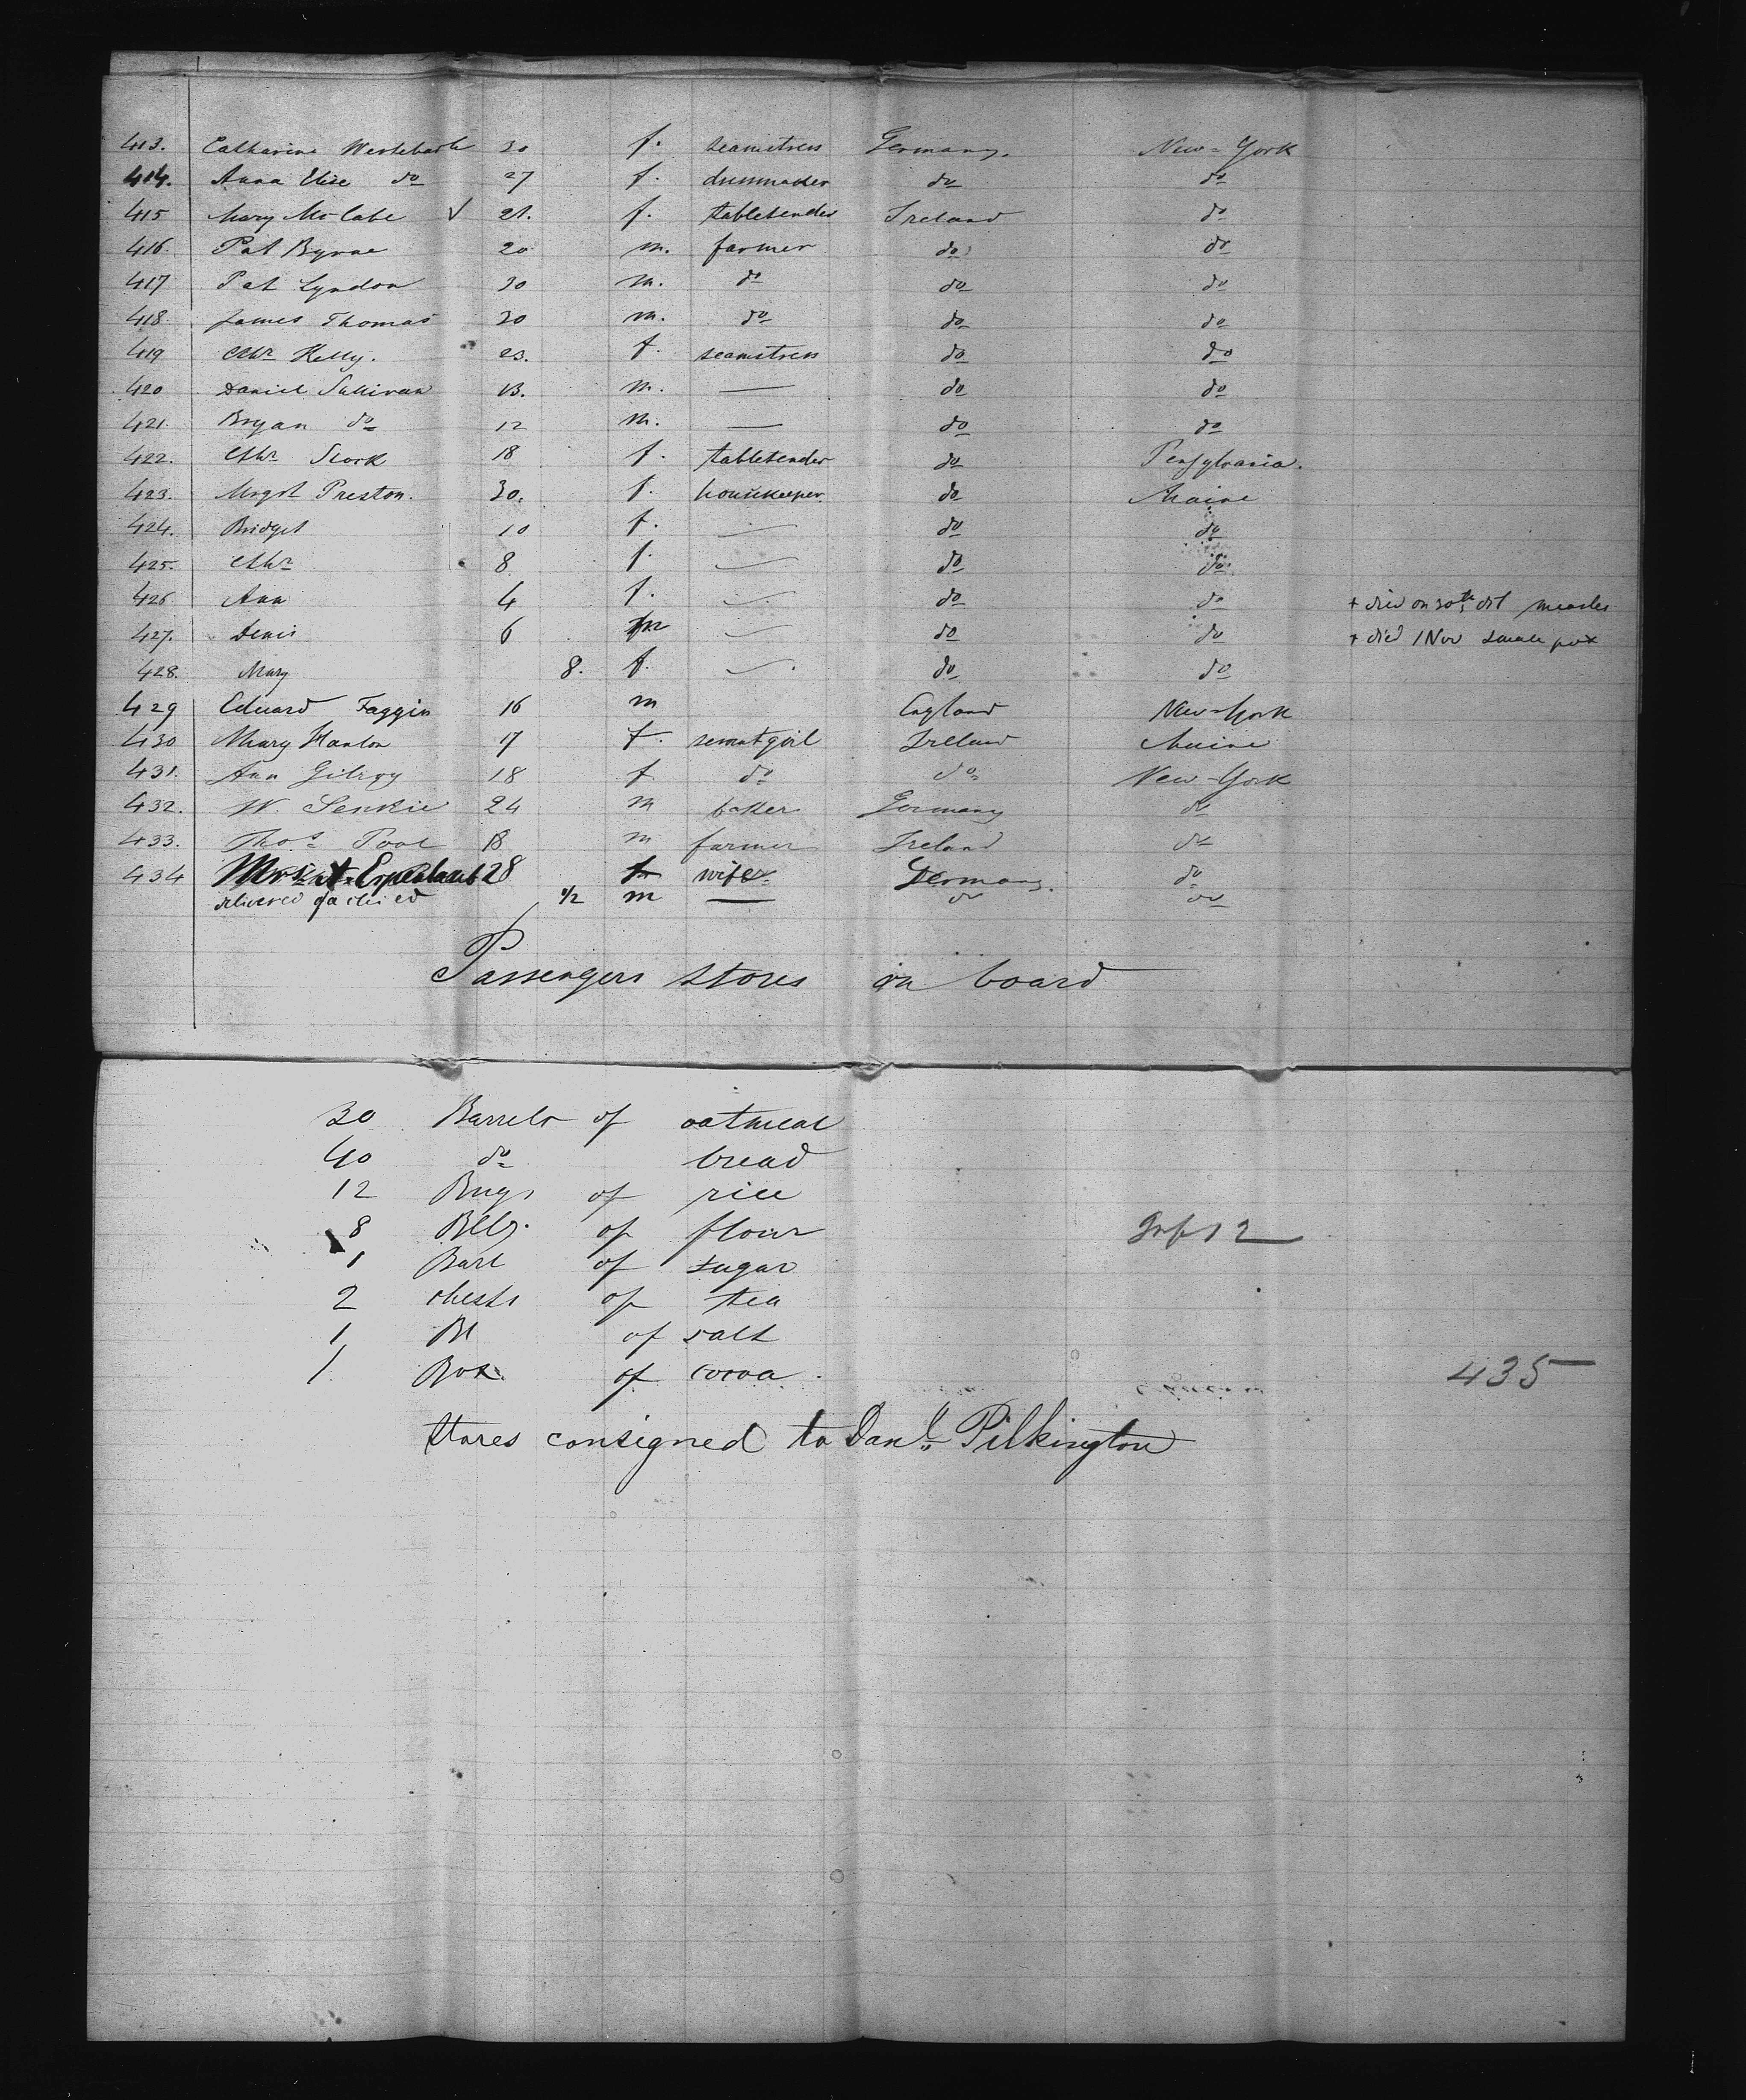 413. Catharine Westebarth 30 f. seamstress Germany. New-York
414. Anna Elise do 27 f. dressmaker do do
415 Mary McCabe √ 21. f. tabletender Ireland do
416. Pat Byrne 20 m. farmer do do
417 Pat Lyndon 30 m. do do do
418. James Thomas 30 m. do do do
419 Cthr Kelly. 23. f. seamstress do do
420 Daniel Sullivan 13. m. — do do
421. Bryan do 12 m. — do do
422. Cthr Stork 18 f. tabletender do Pensylvania.
423. Mrgrt Preston. 30. f. housekeeper. do Maine
424. Bridget 10 f. — do do
425. Cthr 8 f. — do do
426 Ann 4 f. — do do + died on 30th Oct measles
427. Denis 6 m — do do + died 1 Nov small pox
428. Mary 8. f. — do do
429 Eduard Faggin 16 m England New-York
430 Mary Hanlon 17 f. servantgirl Ireland Maine
431. Ann Gilroy 18 f do do New-York
432. W. Senkie 24 m baker Germany do
433. Thos Pool 18 m farmer Ireland do
434 28 f wife Germany. do
delivered of a child 1/2 m — do do
Passengers stores on board
30 Barrels of oatmeal
40 do bread
12 Bags of rice
8 Blls. of flour
1 Barl of sugar
2 chests of tea
1 Bl of salt
1 Box of cocoa 435
Stores consigned to Danl. Pilkington